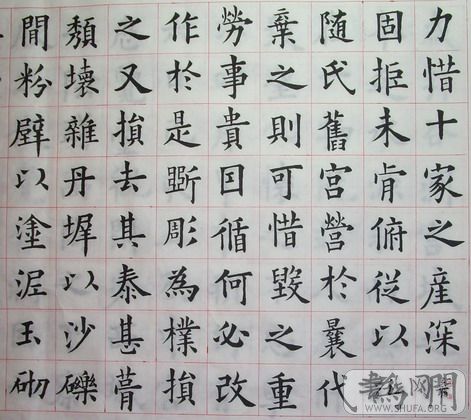 力惜十家之産深
固拒未肯俯從以
随氏舊宮營於曩代
棄之則可惜毀之重
勞事貴因循何必改
作於是斲彫為樸損
之又損去其泰甚葺
頹壞雜丹墀以沙礫
間粉壁以塗泥玉砌
WWW.SHUFA.ORG